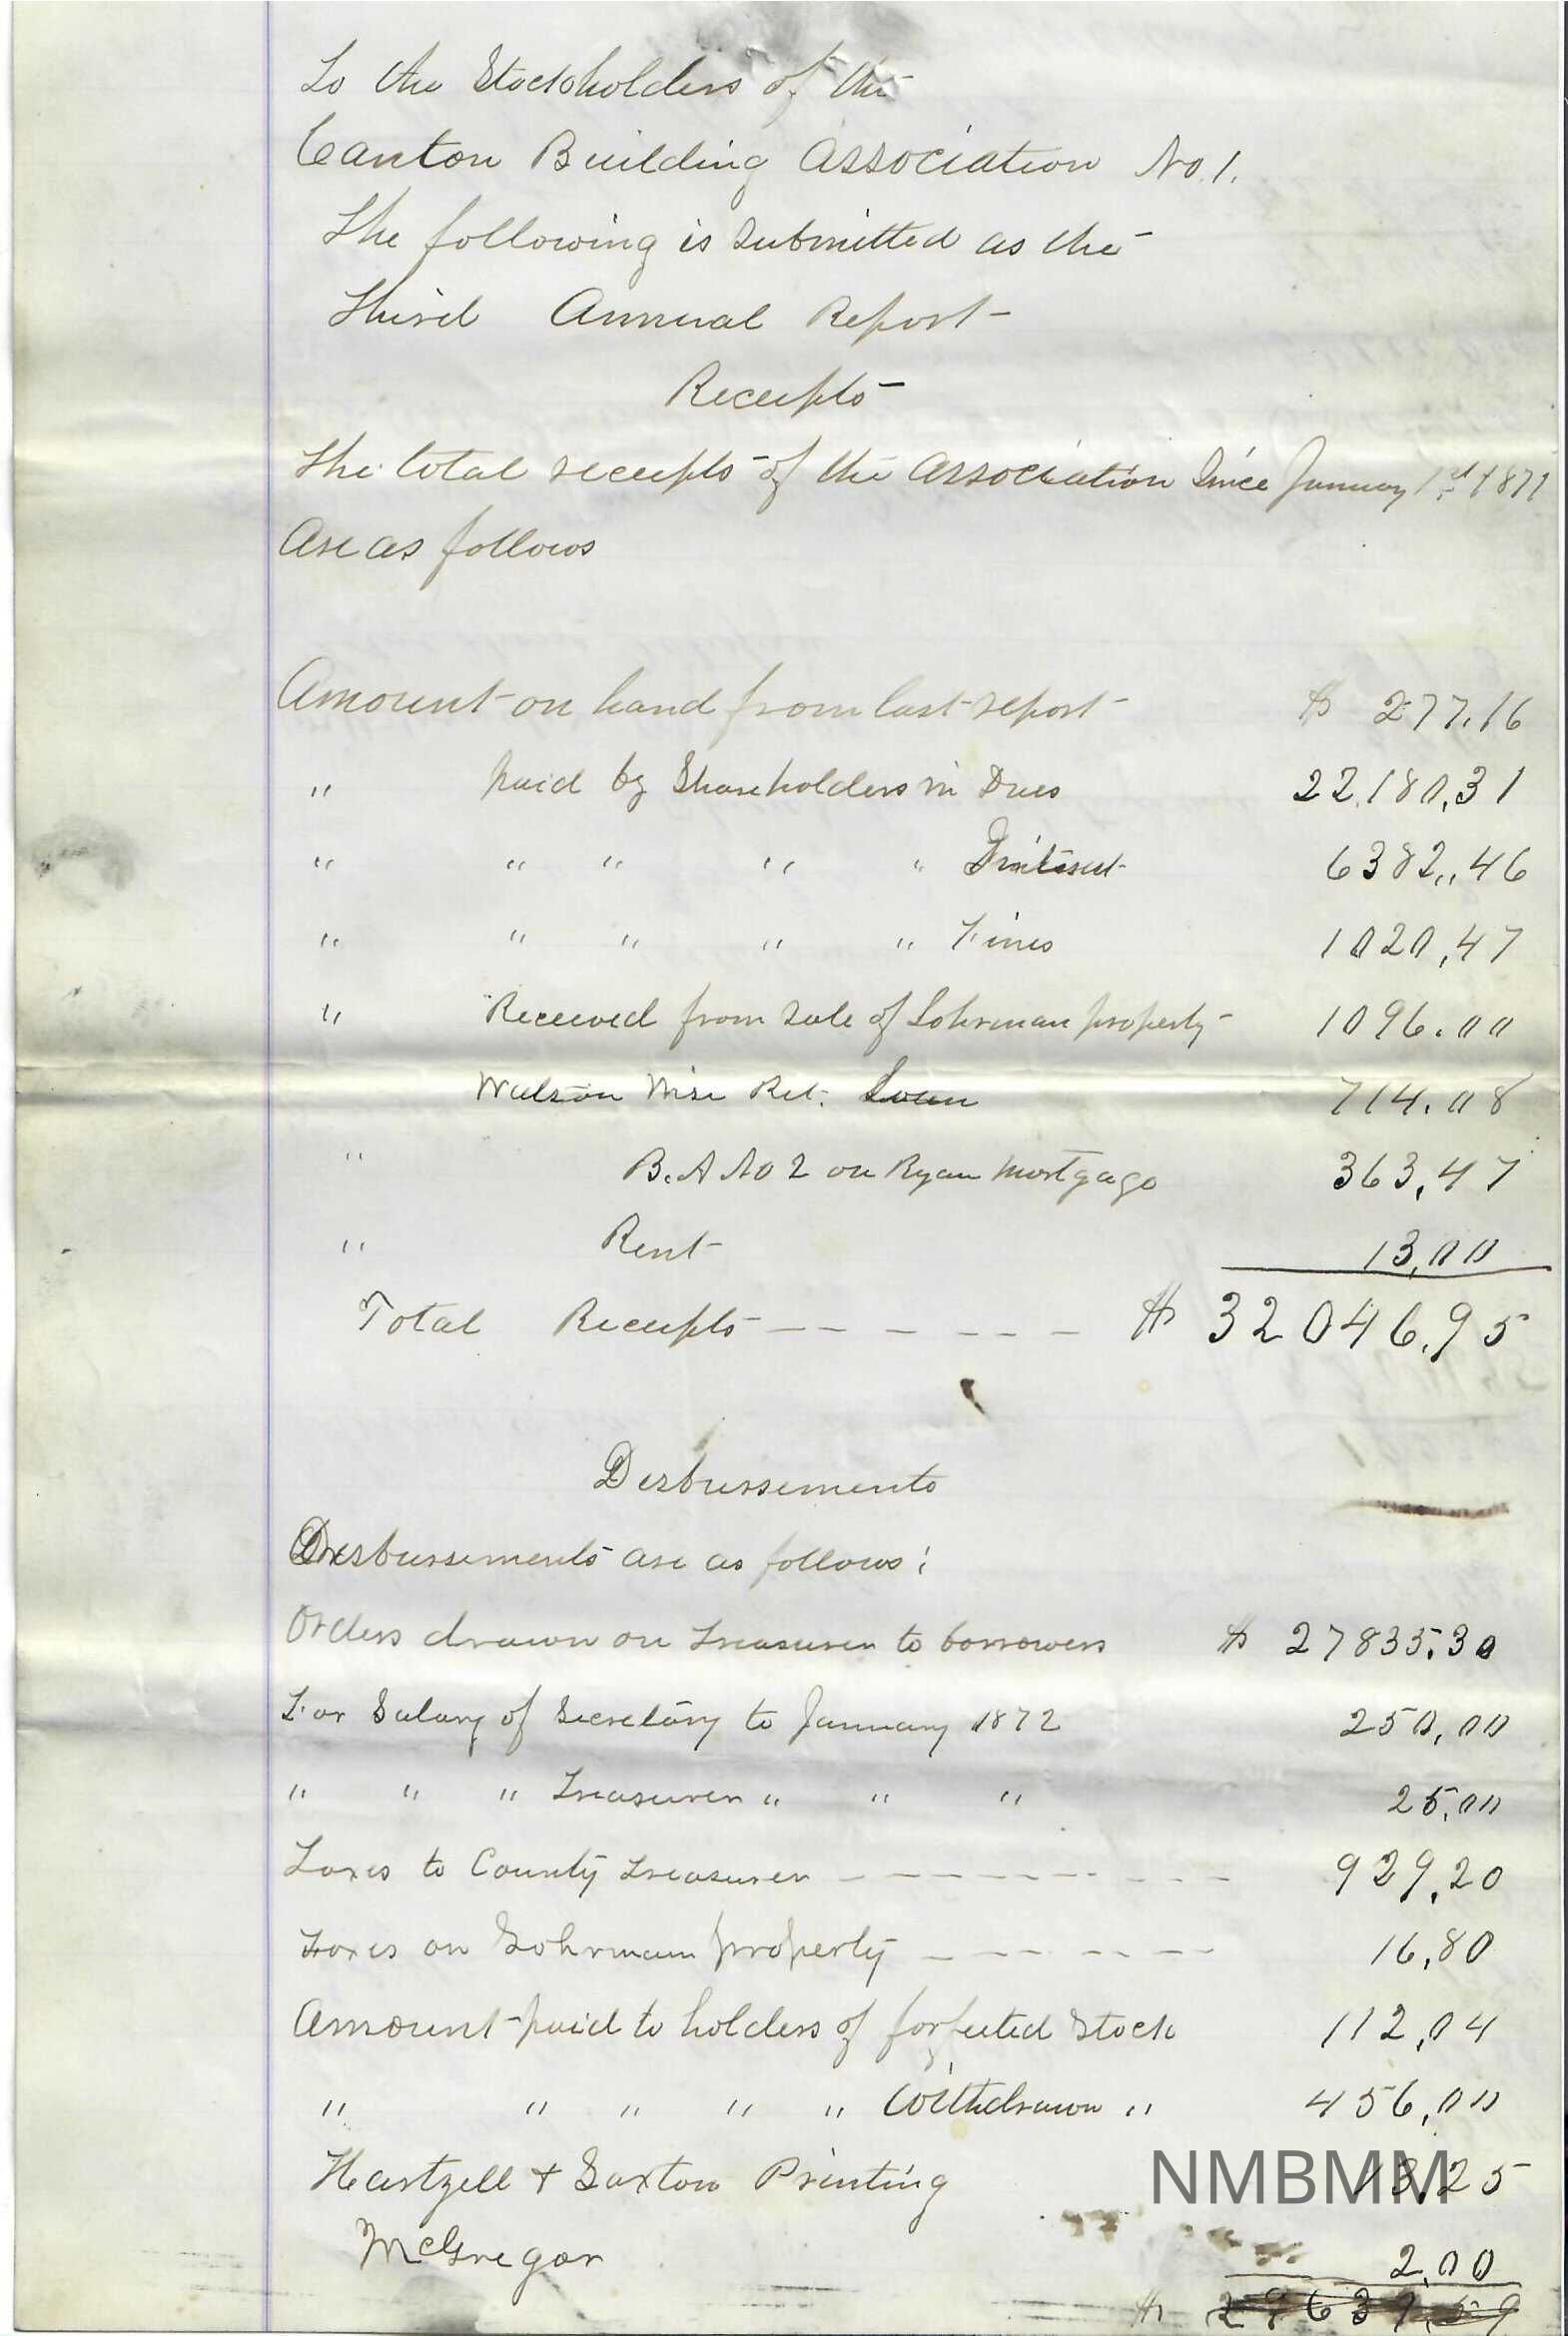 To the Stockholders of the
Canton Building Association No. 1.
The following is submitted as the
Third Annual Report
Receipts
The total receipts of the Association Since January 1st 1871
Are as follows
Amount on hand from last report $ 277.16
" paid by Shareholders in Dues 22,180.31
" " " " " Interest 6382,,46
" " " " " Fines 1020,47
" Received from sale of Lohrman property 1096.00
Watson Wise Ret. Loan 714.08
" B. A No 2 on Ryan Mortgage 363,47
" Rent 13,00
Total Receipts — — — — — — $ 32046.95
Disbursements
Disbursements are as follows:
Orders drawn on Treasurer to borrowers $ 27835.30
For Salary of Secretary to January 1872 250,00
" " " Treasurer " " " 25.00
Taxes to County Treasurer — — — — — — — — 929,20
Taxes on Lohrman property — — — — — 16,80
Amount paid to holders of forfeited Stock 112,04
" " " " " Withdrawn " 456,00
Hartzell + Saxton Printing 13.25
NMBMM
McGregor 2,00
$ 29639,59